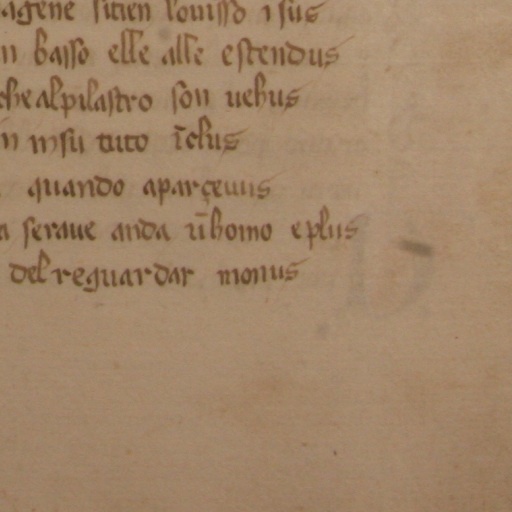 agene sitien louisso i sus
n basso elle alle estendus
che al pilastro son uebus
in insu tuto īclus
quando aparçeuus
a seraue anda ūhomo e plus
del reguardar monus